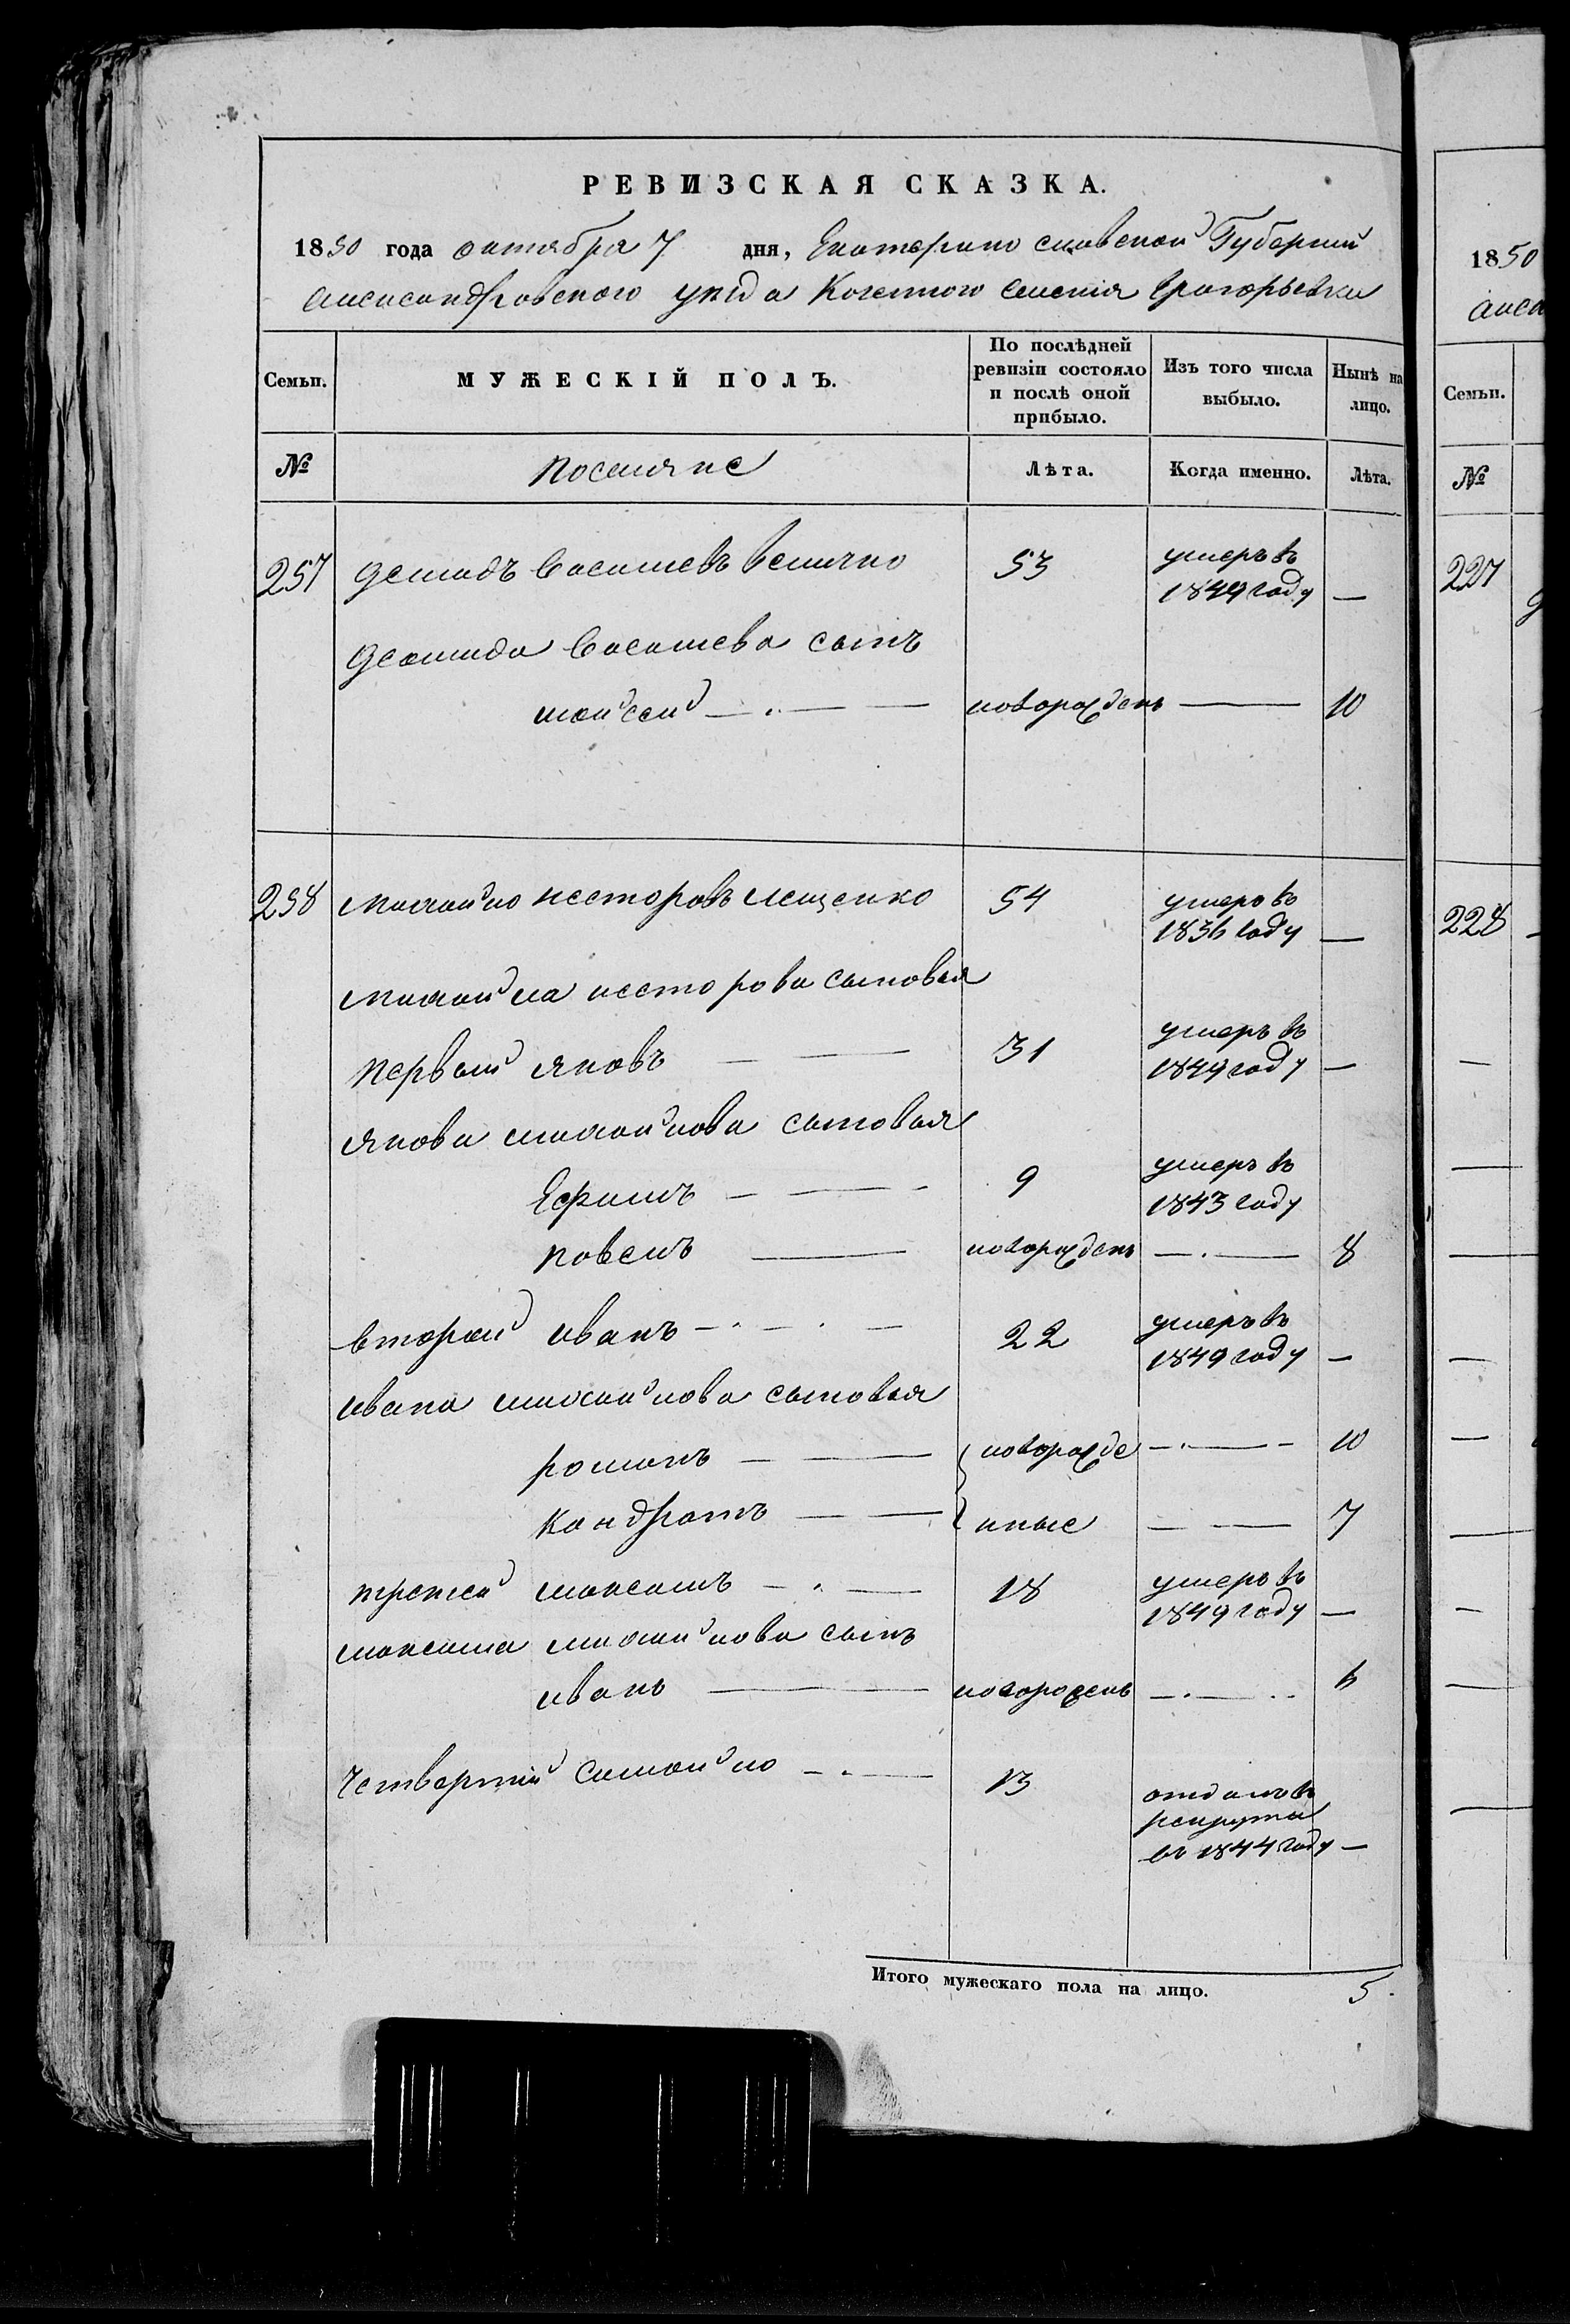 РЕВИЗСКАЯ СКАЗКА.
1850 года октября 7 дня, Екатерино славской Губернии
Александровского уезда Козенного селения Григорьевки
Семьи. МУЖЕСКІЙ ПОЛЪ. По послѣдней ревизіи состояло и послѣ оной прибыло. Изъ того числа выбыло. Нынѣ на лицо.
№ поселяне Лѣта. Когда именно. Лѣта.
257 Демидъ Васильевъ Величко 53 умеръ въ 1849 году —
Демида Васильева сынъ
мойсей — новорожденъ — 10
258 михайло несторовъ лещенко 54 умеръ въ 1836 году —
михайла несторова сыновья
первый яковъ — 31 умеръ въ 1849 году —
якова михайлова сыновья
Ефимъ — 9 умеръ въ 1843 году
повелъ — новорожденъ — 8
второй иванъ — 22 умеръ въ 1849 году —
ивана михайлова сыновья
романъ — новорожде — 10
Кондратъ — нные — 7
третей максимъ — 18 умеръ въ 1849 году —
максима михайлова сынъ
иванъ — новорожденъ — 6
Четвертый самойло — 13 отданъ въ рекруты въ 1844 году —
Итого мужескаго пола на лицо. 5
1850
Алек
Семьи.
№
227
228